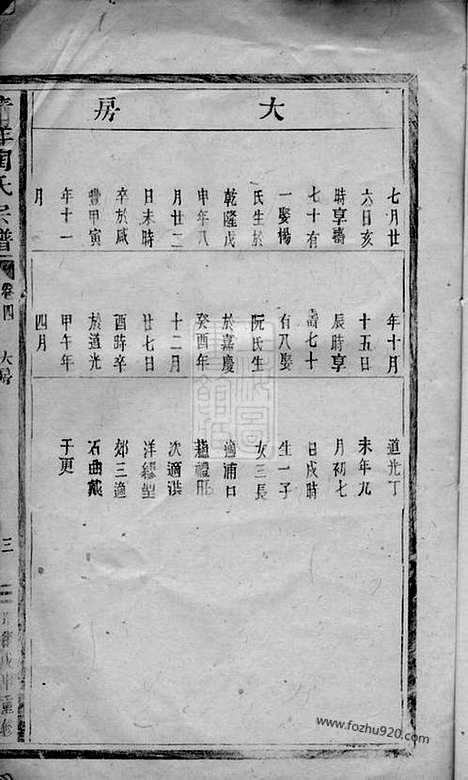 大房
七月廿
六日亥
時享壽
七十有
一娶楊
氏生於
乾隆戊
申年八
月廿二
日未時
卒於咸
豐甲寅
年十一
月
年十月
十五日
辰時享
壽七十
有八娶
阮氏生
於嘉慶
癸酉年
十二月
廿七日
酉時卒
於道光
甲午年
四月
道光丁
未年九
月初七
日戌時
生一子
女三長
適浦口
趙禮邢
次適洪
洋繆塱
郊三適
石曲戴
于更
陶氏宗譜
卷四
大房
三
www.fozhu920.com